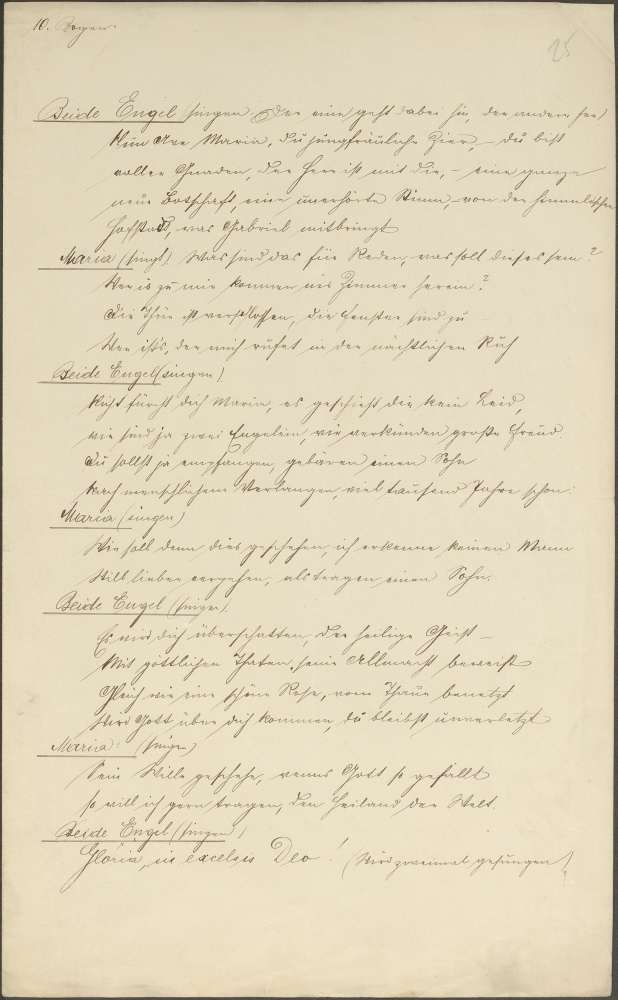 10. Bogen.
25
Beide Engel (singen) (Der eine geht dabei hin, der andere her)
Nun Ave Maria, du jungfräuliche Zier, – du bist
voller Gnaden, der Herr ist mit dir, – eine ganze
neue Botschaft, eine unerhörte Stimm, – von der himmlischen
Hofstadt, was Gabriel mitbringt
Maria (singt) Was sind das für Reden, was soll dieses sein?
Wer is zu mir kommen ins Zimmer herein?
Die Thür ist verschlossen, die Fenster sind zu
Wer ists, der mich rufet in der nächtlichen Ruh
Beide Engel (singen)
Nicht fürcht dich Maria, es geschieht dir kein Leid,
wir sind ja zwei Engelein, wir verkünden große Freud.
du sollst ja empfangen, gebären einen Sohn
Nach menschlichem Verlangen, viel tausend Jahre schon.
Maria (singen)
Wie soll denn dies geschehen, ich erkenne keinen Mann
Will lieber vergehen, als tragen einen Sohn.
Beide Engel (singen).
Es wird dich überschatten, der heilige Geist –
Mit göttlichen Thaten, seine Allmacht beweist
Gleich wie eine schöne Rose, vom Thaue benetzt
Wird Gott über dich kommen, du bleibst unverletzt
Maria: (singen)
Sein Wille geschehe, wenns Gott so gefällt
so will ich gern tragen, den Heiland der Welt.
Beide Engel (singen)
Gloria, in excelsis Deo! (Wird zweimal gesungen)